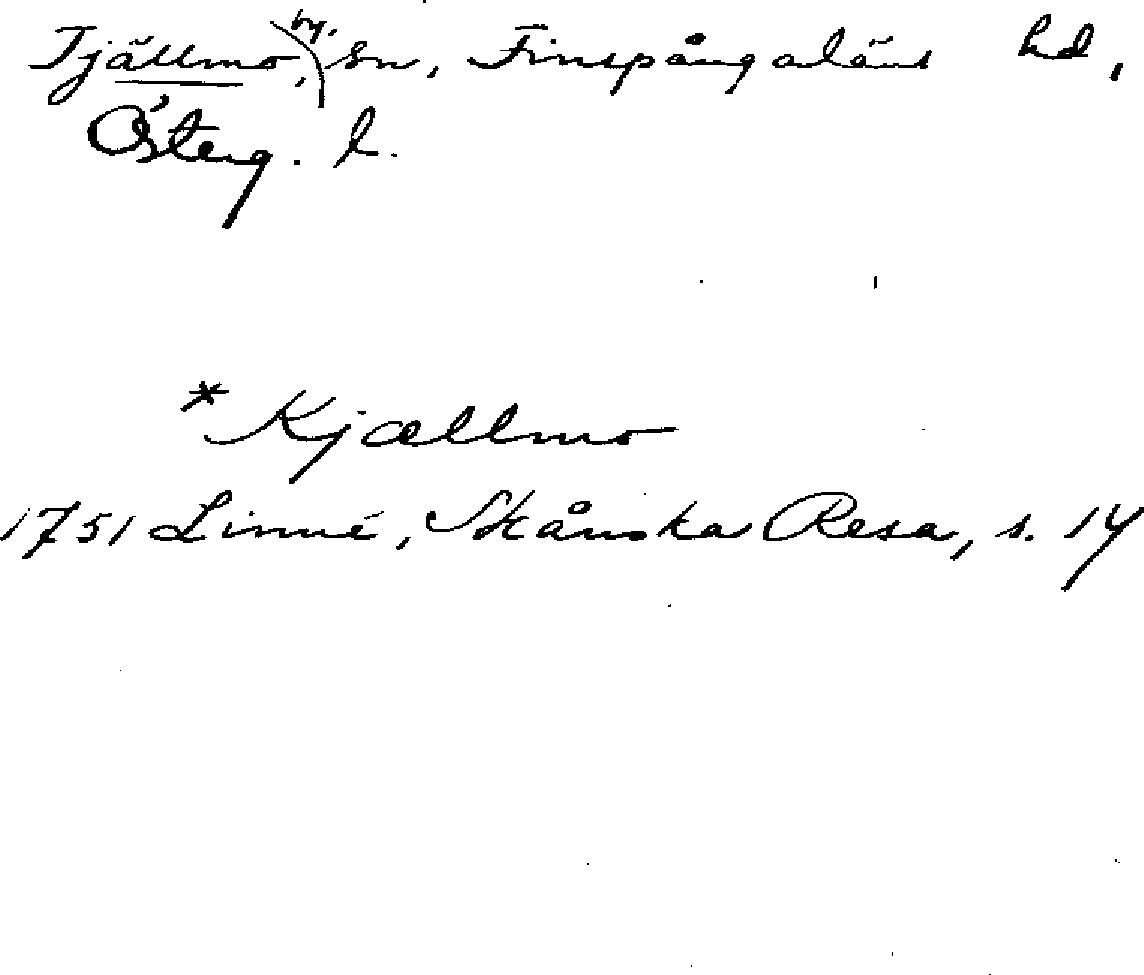 Tjällmo, by. sn, Finspångaläns hd,
Österg. l.
* Kjællmo
1751 Linné, Skånska Resa, s. 14